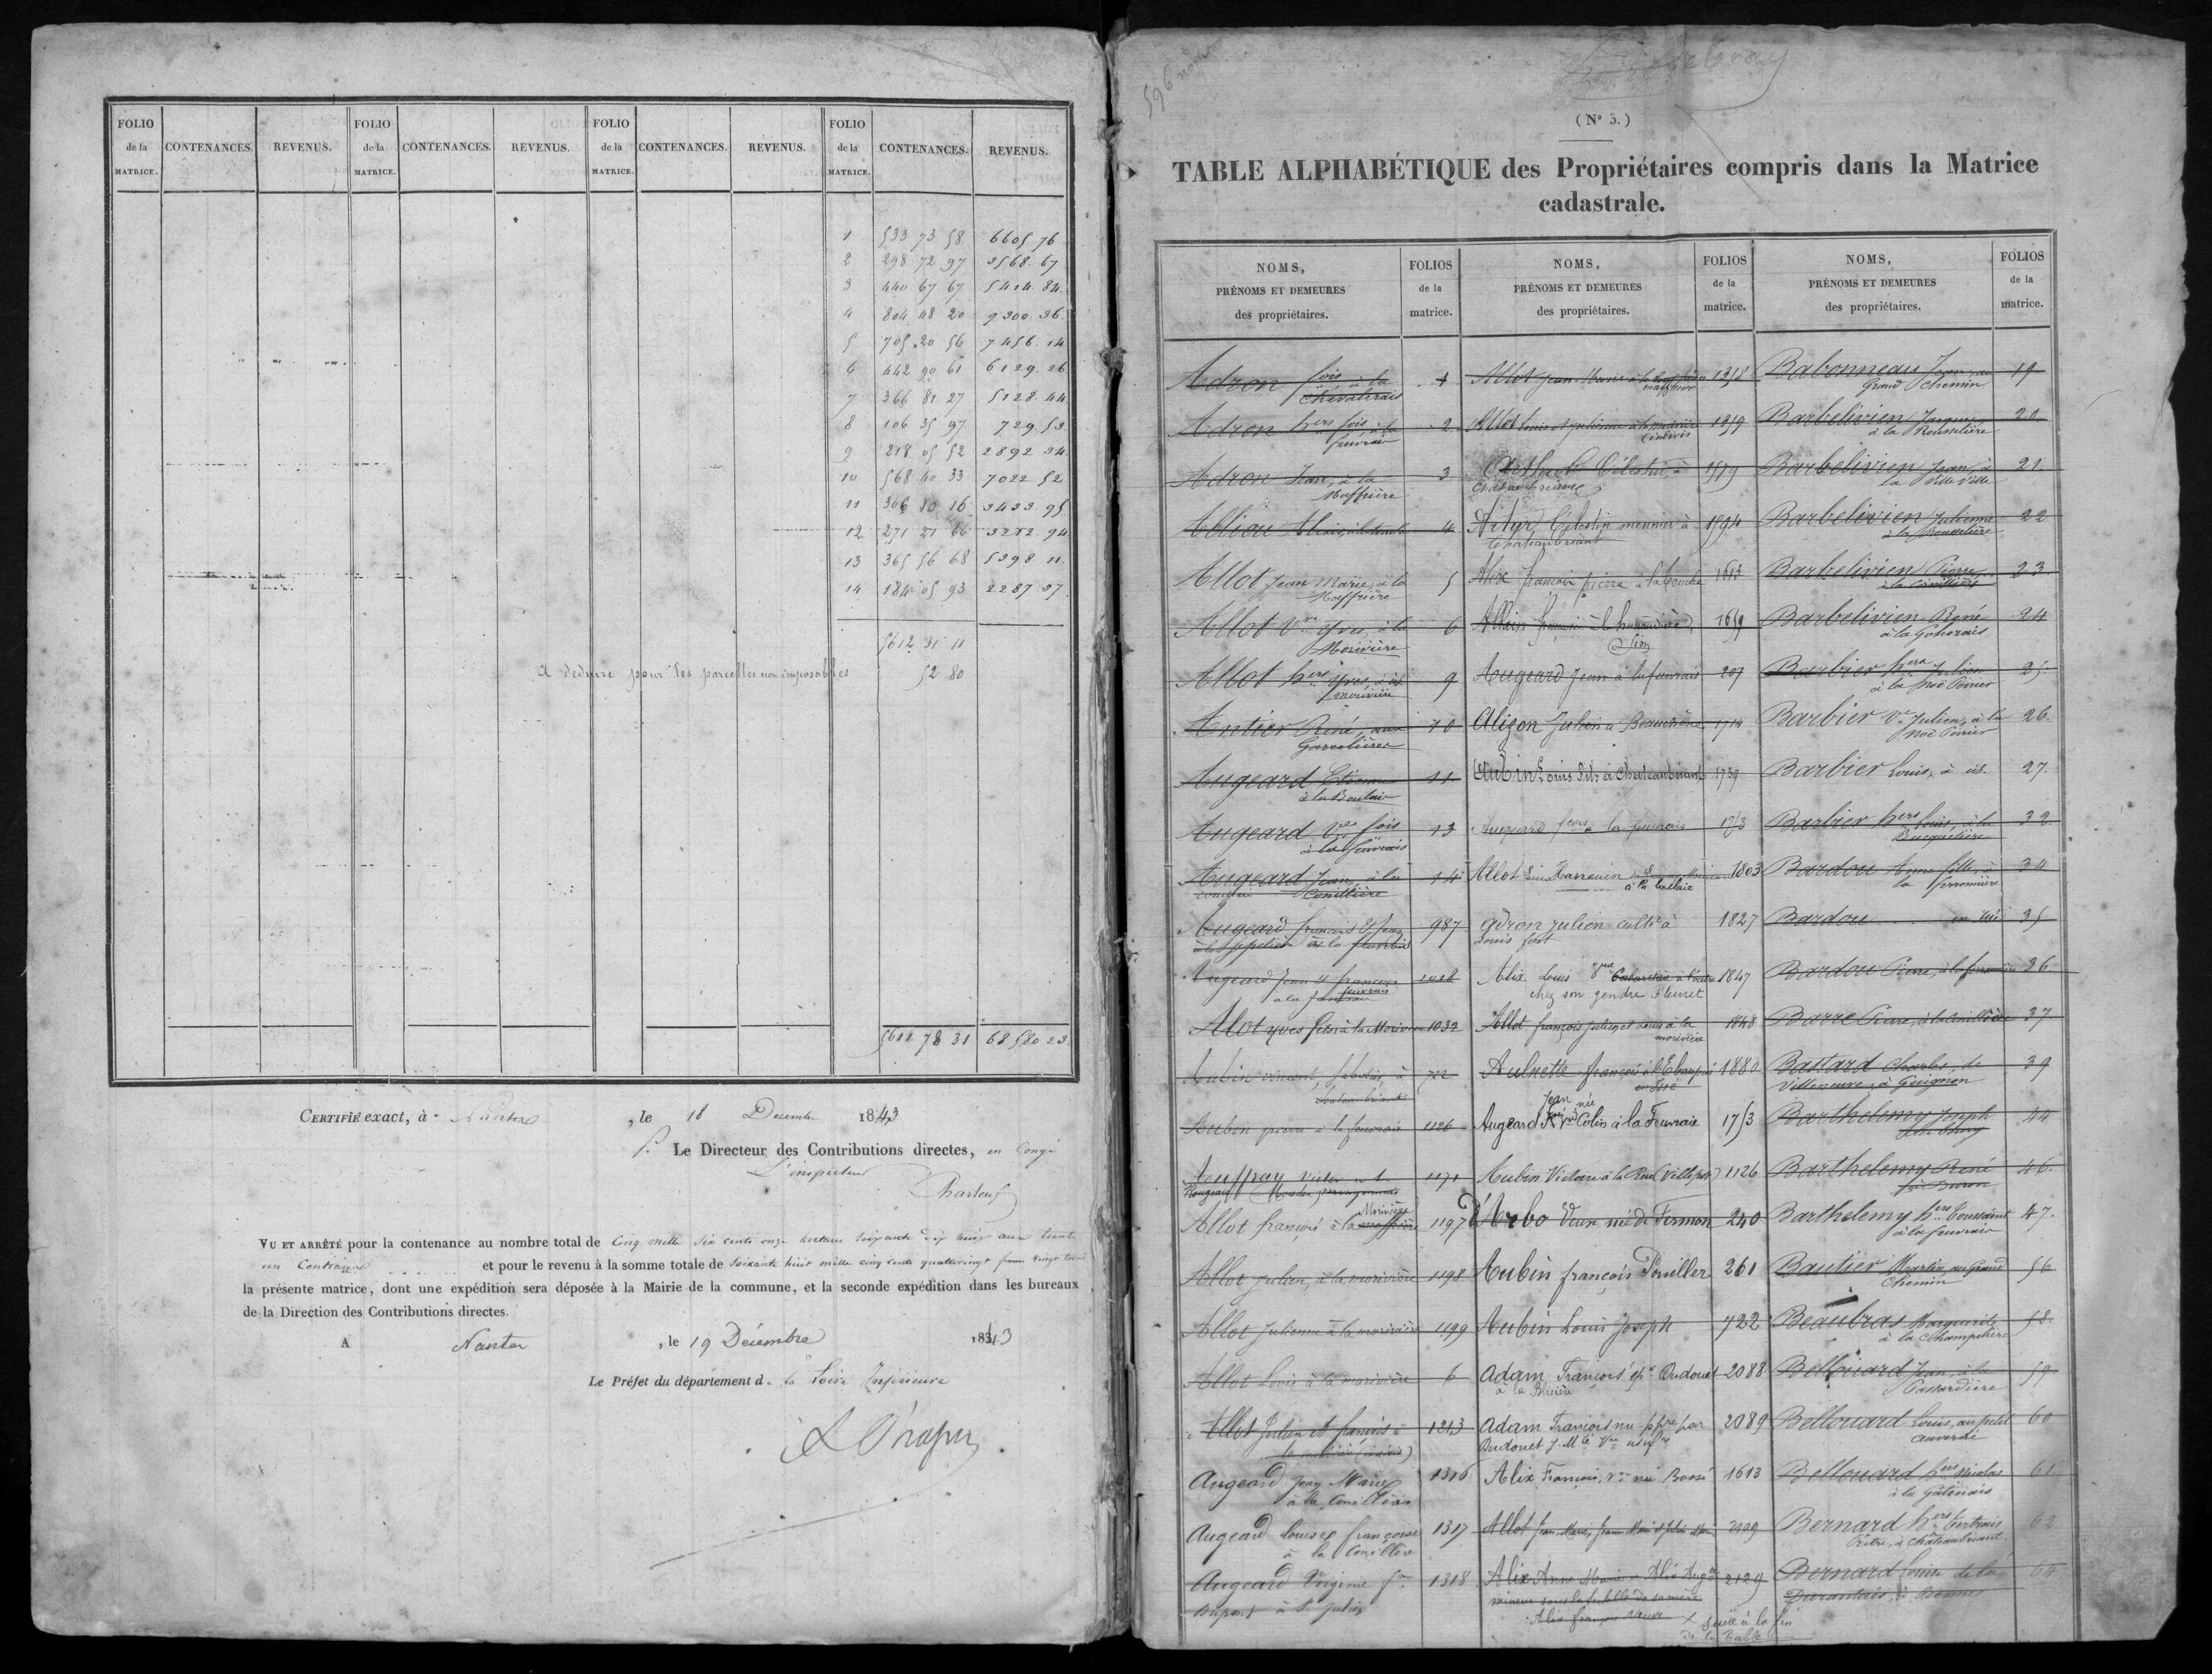 FOLIO de la MATRICE. CONTENANCES. REVENUS. FOLIO de la MATRICE. CONTENANCES. REVENUS. FOLIO de la MATRICE. CONTENANCES. REVENUS. FOLIO de la MATRICE. CONTENANCES. REVENUS.
1 533 73 58 6605 76
2 298 72 97 3568 67
3 440 67 67 5424 84
4 804 48 20 9300 36
5 705 20 56 7456 14
6 442 90 61 6129 26
7 366 81 27 5128 44
8 106 35 97 729 53
9 218 05 52 2892 34
10 568 40 33 7022 52
11 306 10 16 3433 95
12 271 21 66 3212 94
13 365 56 68 5398 11
14 184 05 93 2287 37
5612 31 11
A déduire pour les parcelles non imposables 52 80
5611 78 31 68580 23
CERTIFIÉ exact, à Nantes, le 18 Décembre 1843
P. Le Directeur des Contributions directes, en Congé
L'inspecteur
VU ET ARRÊTÉ pour la contenance au nombre total de Cinq mille six cents onze hectares soixante dix huit ares trente
un Centiares et pour le revenu à la somme totale de Soixante huit mille cinq cents quatrevingt francs vingt trois
la présente matrice, dont une expédition sera déposée à la Mairie de la commune, et la seconde expédition dans les bureaux
de la Direction des Contributions directes.
A Nantes, le 19 Décembre 1843
Le Préfet du département de la Loire Inférieure
596
(N° 3.)
TABLE ALPHABÉTIQUE des Propriétaires compris dans la Matrice
cadastrale.
NOMS, PRÉNOMS ET DEMEURES des propriétaires. FOLIOS de la matrice.
Adron fois à la Chevalerais 1
Adron hers fois à la feuvrais 2
Adron Jean, à la Maffrière 3
Alliou 4
Allot Jean Marie, à la Maffrière 5
Allot Vve Yves, à la Morivière 6
Allot hers Yves, à la morivière 9
Antier René, aux 10
Augeard Etienne à la Boulais 11
Augeard Vve fois à la feuvrais 13
Augeard Jean, à la Conillière 14
Augeard François & Jean à la feuvrais 987
Augeard Jean & françois à la feuvrais 1028
Alot Yves à la Morivière 1032
Aubin vincent à Chateaubriant 722
Aubin pierre à la feuvrais 1126
1171
Allot françois à la Morivière 1197
Allot Julien, à la morivière 1198
Allot Julienne à la morivière 1199
Allot Louis à la morivière 6
Allot Julien et françois à 1213
Augeard Jean Marie à la Conillère 1316
Augeard Louise françoise à la Conillère 1317
Augeard Virginie fme Dupont à St Julien 1318
NOMS, PRÉNOMS ET DEMEURES des propriétaires. FOLIOS de la matrice.
Allot Jean Marie 1318
Allot Louis et Julienne à la morivière (indivis) 1319
Célestin à Chateaubriant 1579
Célestin meunier à Chateaubriant 1594
Alix françois pierre à la Touche 1613
Allain 1659
Augeard Jean à la feuvrais 207
Alizon Julien à Beauchêne 1714
Aubin Louis à Chateaubriant 1739
Augeard à la feuvrais 1753
Allot 1803
Adron Julien cultr à Louis fort 1827
Alix Louis chez son gendre Fleuret 1847
Allot françois Julien et Louis à la morivière 1848
Aulnette françois 1880
Augeard Jean Vve née Colin à la Feuvraie 1753
Aubin Victoire à la Rue (Villepot) 1126
D'Arbo Veuve née de Fermon 240
Aubin françois 261
Aubin Louis Joseph 722
Adam François ép. Oudouet à la Blivière 2088
Adam François nu-ppre par Oudouet J. Mie Vve usufre 2089
Alix François, Vve née Bossé 1613
Allot Jean Marie 2109
Alix Anne Marie Alix Augte 2129
mineur sous la tutelle de sa mère
Alix françois Veuve
Suite à la fin de la Table
NOMS, PRÉNOMS ET DEMEURES des propriétaires. FOLIOS de la matrice.
Babonneau Jean, au Grand Chemin 19
Barbelivien Jacques à la Rousselière 20
Barbelivien Jean, à la Ville Ville 21
Barbelivien Julienne à la Rousselière 22
Barbelivien Pierre à la Conillière 23
Barbelivien René à la Gohorais 24
Barbier hers Julien à la Noë Poirier 25
Barbier Ve Julien, à la Noë Poirier 26
Barbier Louis, à id. 27
Barbier hers Louis, à la 32
Bardou Anne fille, à la ferronnière 34
Bardou 35
Bardou Pierre, à la ferronnière 36
Barre Pierre, à la Conillière 37
Bastard Charles, de Villeneuve, à Guignen 39
Barthelemy Joseph 44
Barthelemy René 46
Barthelemy hers Toussaint à la feuvrais 47
Bautier Martin, au Grand Chemin 56
Beaubras Marguerite à la Champelière 58
Bellouard Jean, à la 59
Bellouard Louis, au petit auverné 60
Bellouard hers Nicolas à la Gâtinais 61
Bernard hers Prêtre, à Châteaubriant 62
Bernard Louis de la à Rennes 64